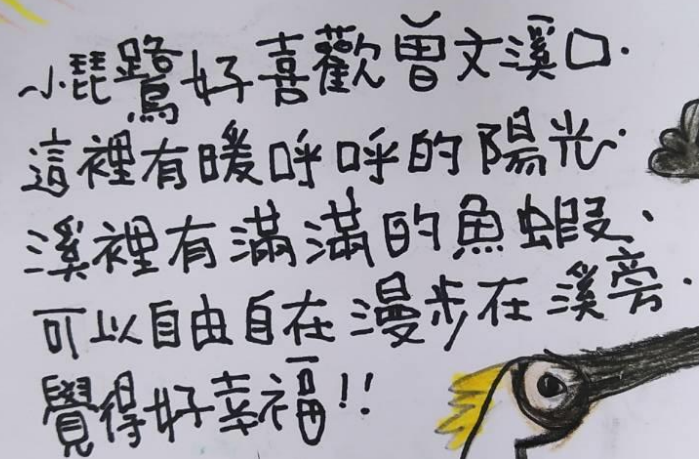 小琵鷺好喜歡曾文溪口.
這裡有暖呼呼的陽光.
溪裡有滿滿的魚蝦.
可以自由自在漫步在溪旁.
覺得好幸福!!